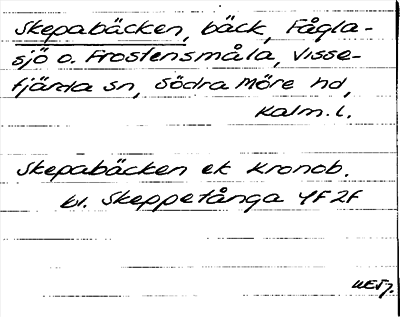 Skepabäcken, bäck, Fågla-
sjö o. Frostensmåla, Visse-
fjärda sn, Södra Möre hd,
Kalm. l.
Skepabäcken ek Kronob.
kv. Skeppetånga 4F 2f